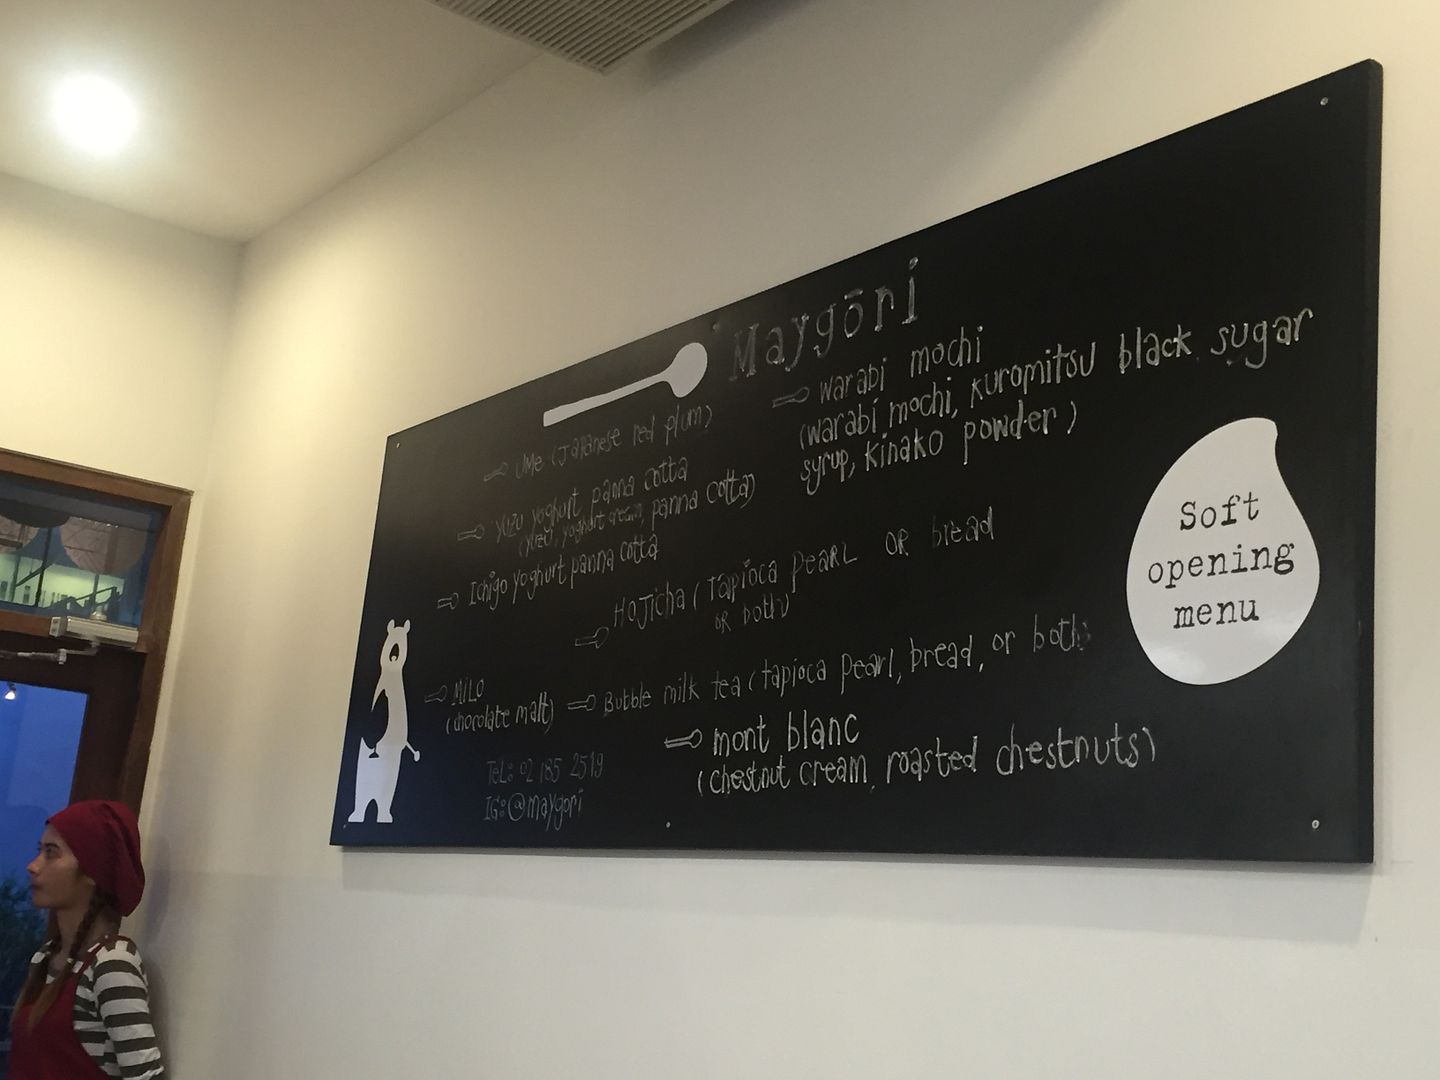 Maygōri
Ume (Japanese red plum)
Yuzu yoghurt panna cotta
(yuzu, yoghurt cream, panna cotta)
Ichigo yoghurt panna cotta
MiLO
(chocolate malt)
TeL: 02 185 2519
IG: @maygori
warabi mochi
(warabi mochi, kuromitsu black sugar
syrup, kinako powder)
HoJicha (Tapioca pearL OR bread
OR both)
Bubble milk tea (tapioca pearl, bread, or both)
mont blanc
(chestnut cream, roasted chestnuts)
Soft
opening
menu